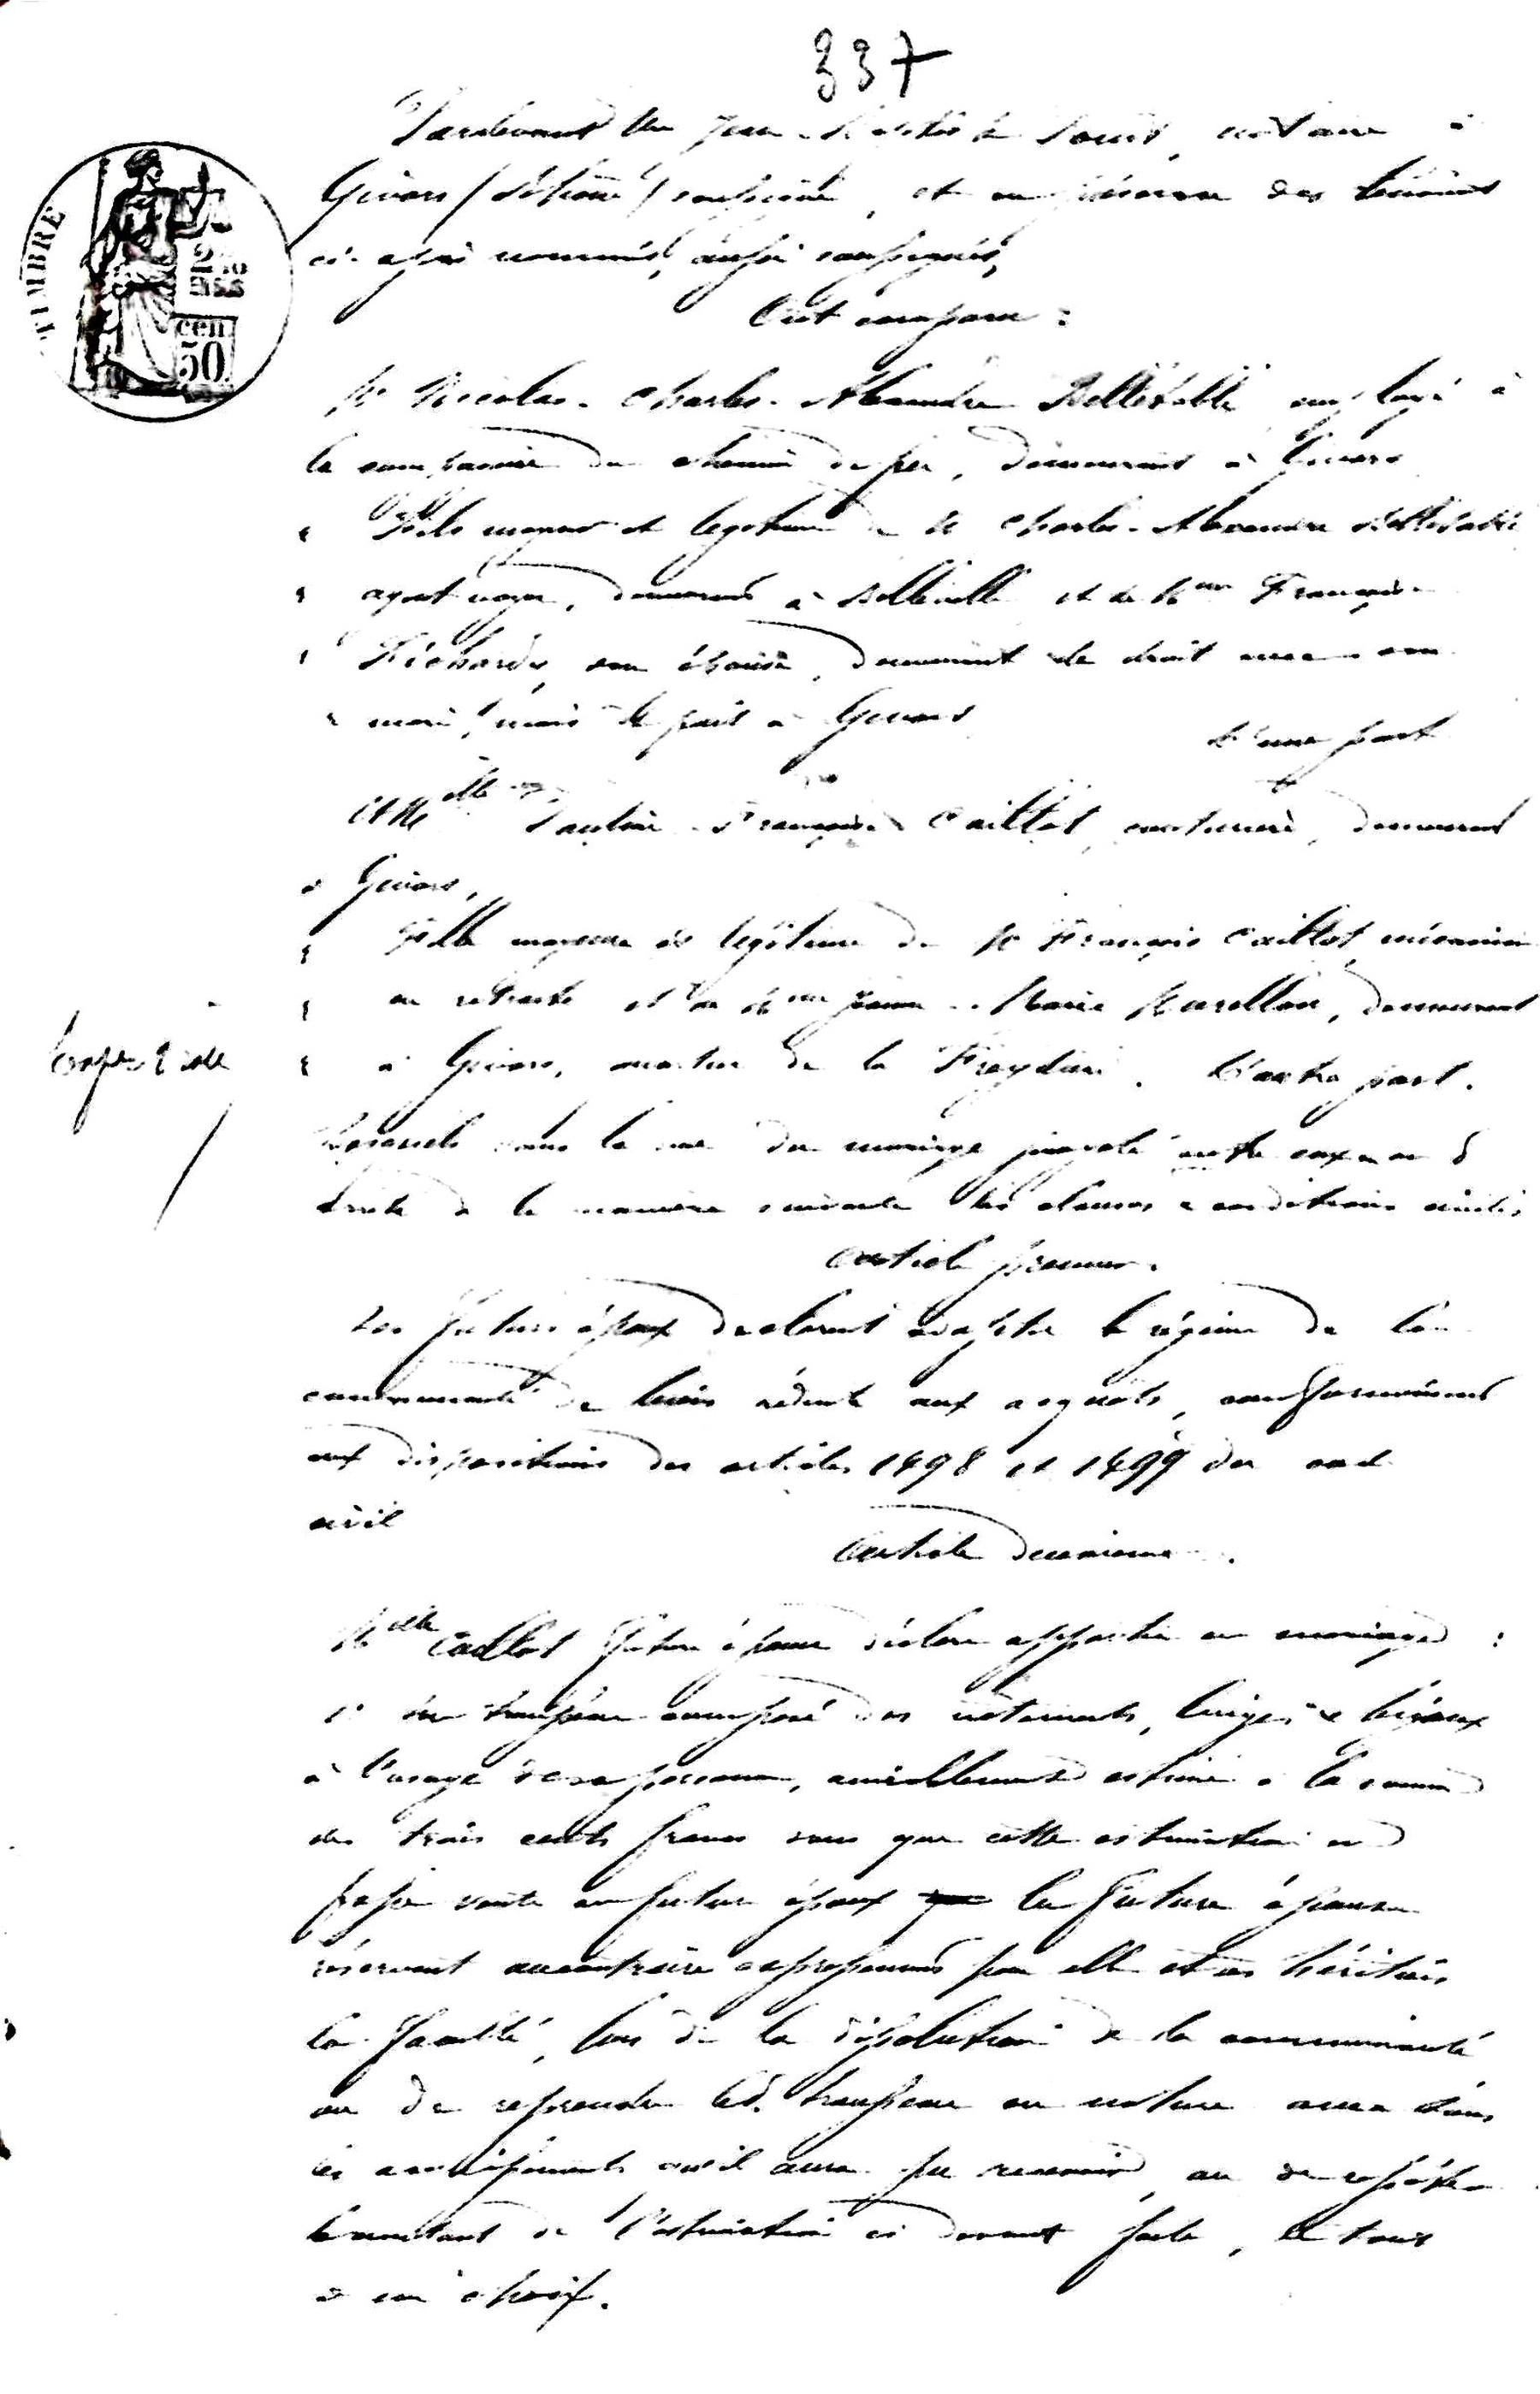 337
TIMBRE
2
cen
50
Pardevant Me Jean notaire à
Givors soussigné, et en présence des témoins
ci-après nommés, aussi soussignés,
Ont comparu :
Mr Nicolas-Charles-Alexandre employé à
la compagnie du chemin de fer, demeurant à Givors
Fils majeur et légitime de Mr Charles-Alexandre
agent voyer, demeurant à Belleville et de Mme Françoise
Richard, son épouse, demeurant de droit avec son
mari, mais de fait à Givors
D'une part
Et Melle Françoise Caillot, couturière, demeurant
à Givors,
Fille majeure et légitime de Mr François Caillot, mécanicien
en retraite et de Mme Jeanne-Marie demeurant
à Givors, quartier de la D'autre part.
Lesquels dans la vue du mariage projeté entre eux ont
traité de la manière suivante les clauses & conditions civiles
Article premier.
Les futurs époux déclarent adopter le régime de la
communauté de biens réduite aux acquêts, conformément
aux dispositions des articles 1498 et 1499 du code
civil
Article deuxième.
Melle Caillot future épouse déclare apporter en mariage :
1° Un trousseau composé des vêtements, linges & bijoux
à l'usage de sa personne, amiablement estimé à la somme
de trois cents francs sans que cette estimation en
fasse vente au futur époux la future épouse
réservant au contraire expressément pour elle et ses héritiers
la faculté, lors de la dissolution de la communauté
ou de reprendre led. trousseau en nature avec tous
les accroissements qu'il aura pu recevoir, ou de répéter
le montant de l'estimation ci devant faite, le tout
à son choix.